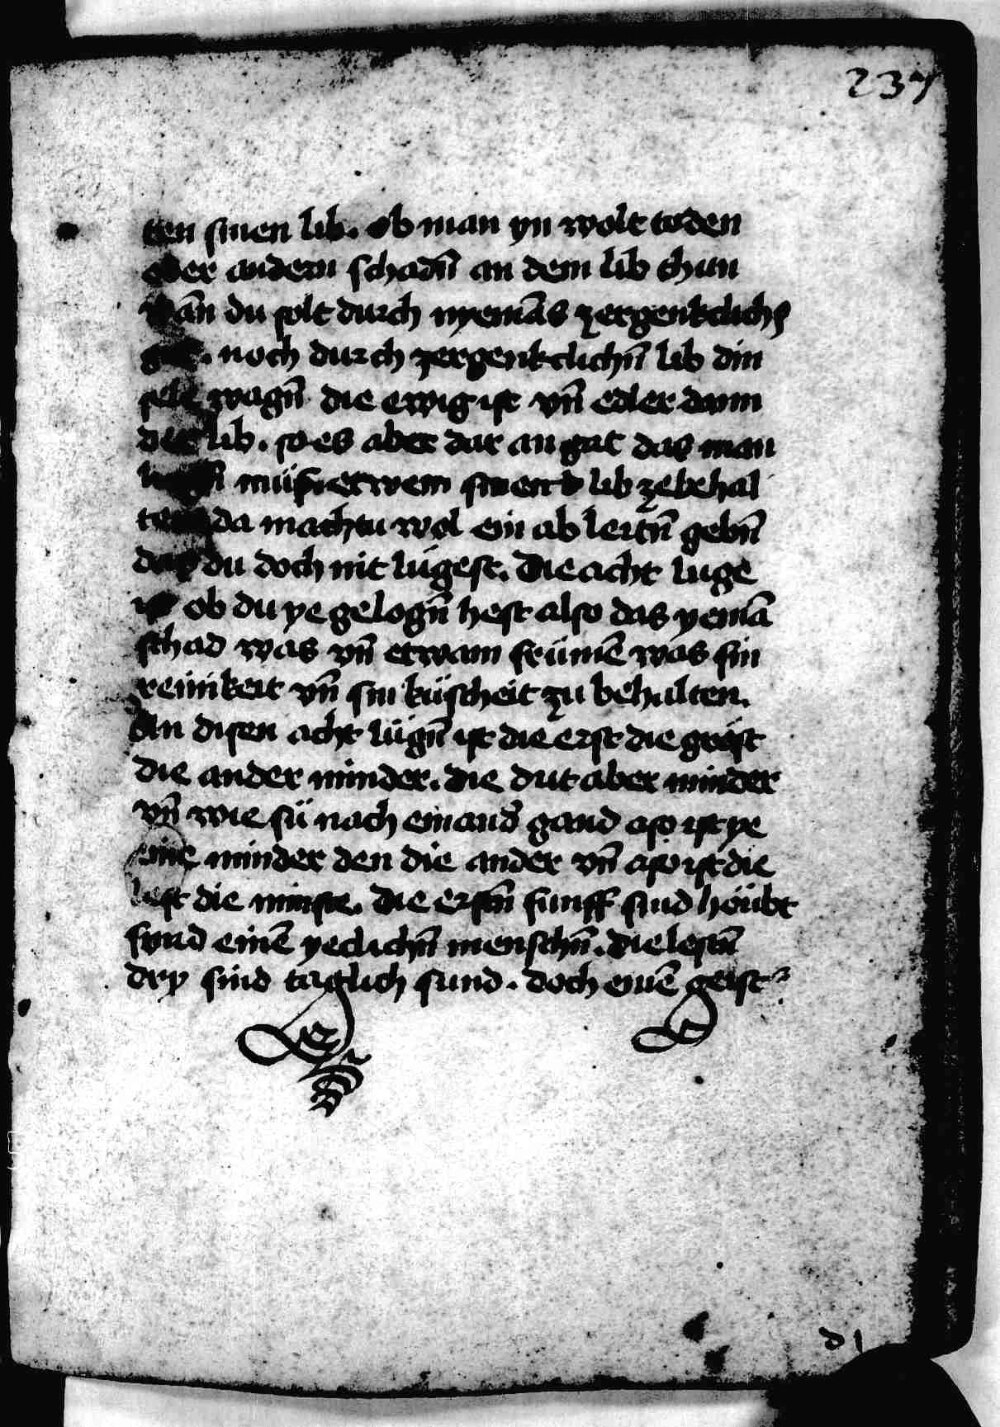 237
tten sinen lib. ob man yn wolt toͤden
oder andern schadn̄ an dem lib thun
wān du solt durch nyemās zergenkclichs
gut. noch durch zergenkclichn̄ lib din
sele wagn̄ die ewig ist vn̄ edler dann
der lib. so es aber dar an gat das man
müss etwem sinen lib zebehal
ten da machtu wol ein ab leitn̄ gebn̄
das du doch nit lügest. Die acht luge
ist ob du ye gelogn̄ hest also das yemā
schad was vn̄ etwam frümē was sin
reinikeit vn̄ sin küscheit zu behalten.
An disen acht lügn̄ ist die erst die gröst
die ander minder. die drit aber minder
vn̄ wie sü nach einand̛ gand aso ist ye
eine minder den die ander vn̄ aso ist die
lest die minste. Die erstn̄ funff sind höubt
sund einē yeclichn̄ menschn̄. die lestn̄
dry sind täglich sund. doch einē geist
d 1